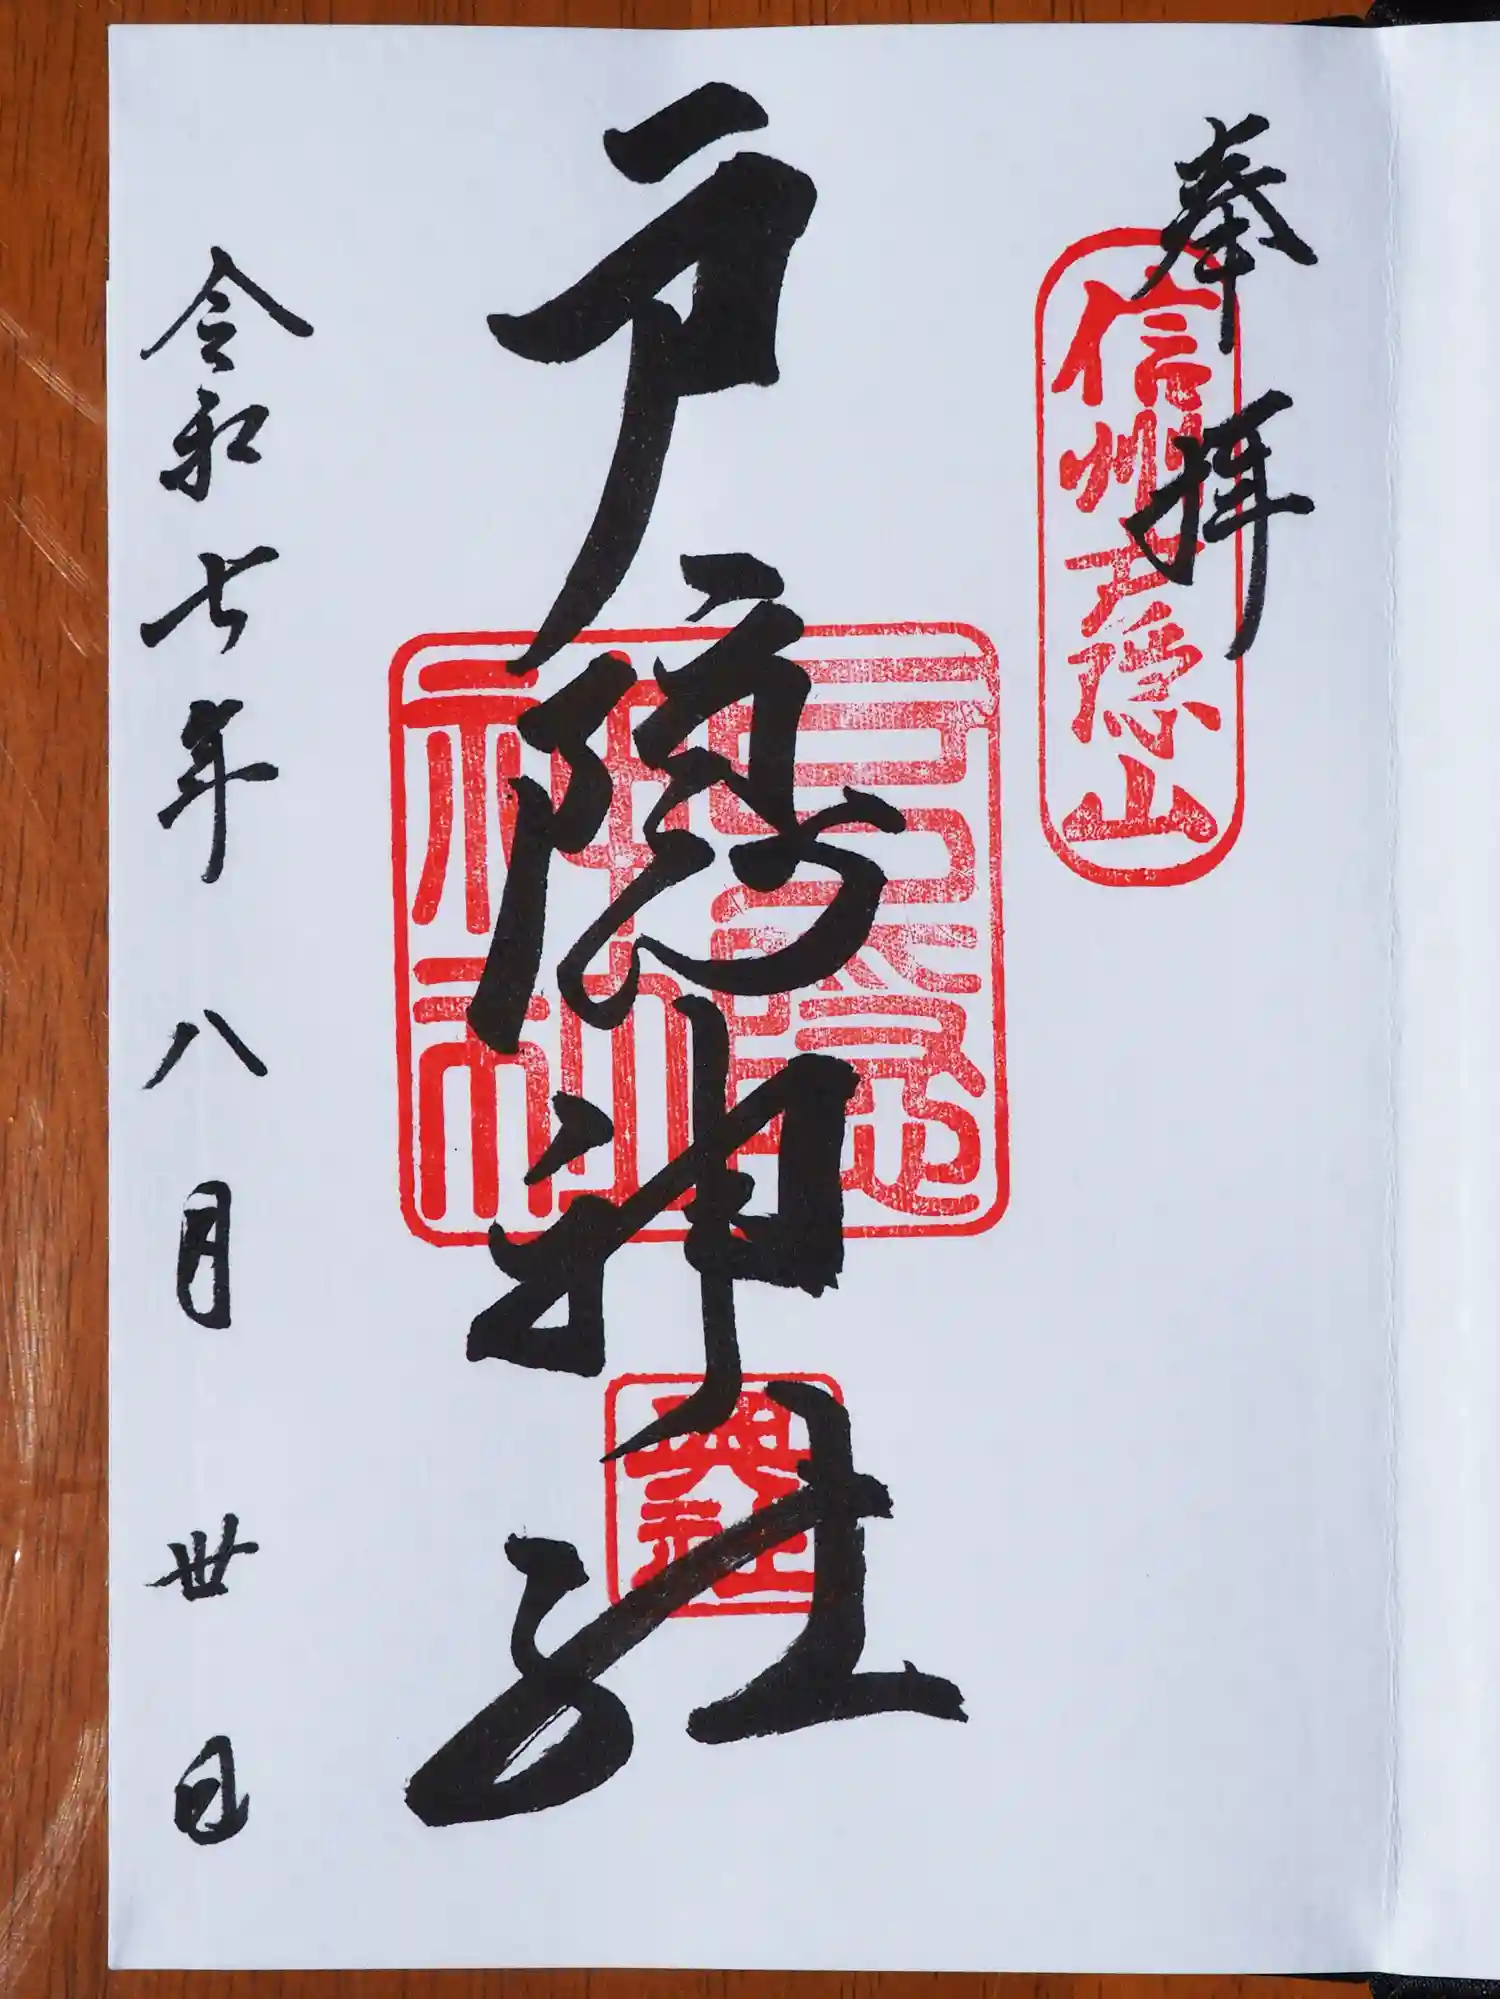 奉拝
信州戸隠山
戸隠神社
戸隠
神社
奥社
令和七年八月卅日